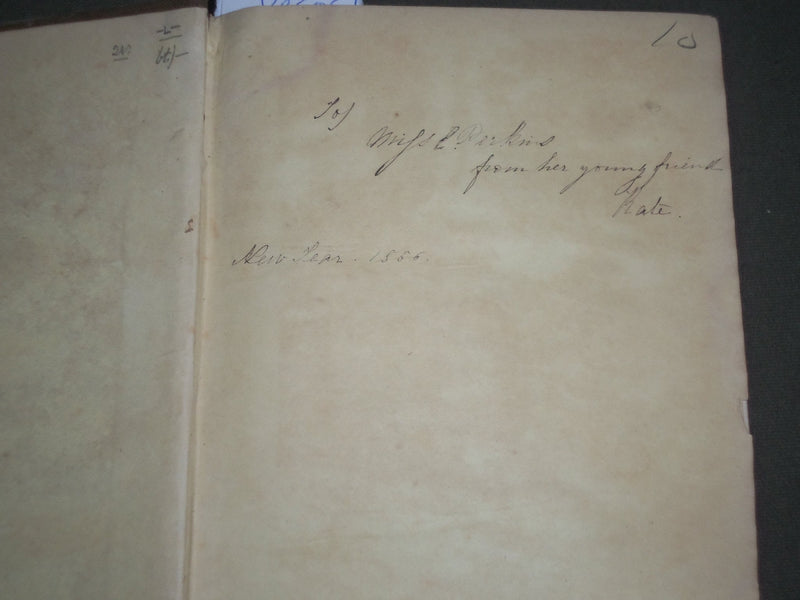 10
To
Miss E. Perkins
from her young friend
Kate.
New Year. 1866.